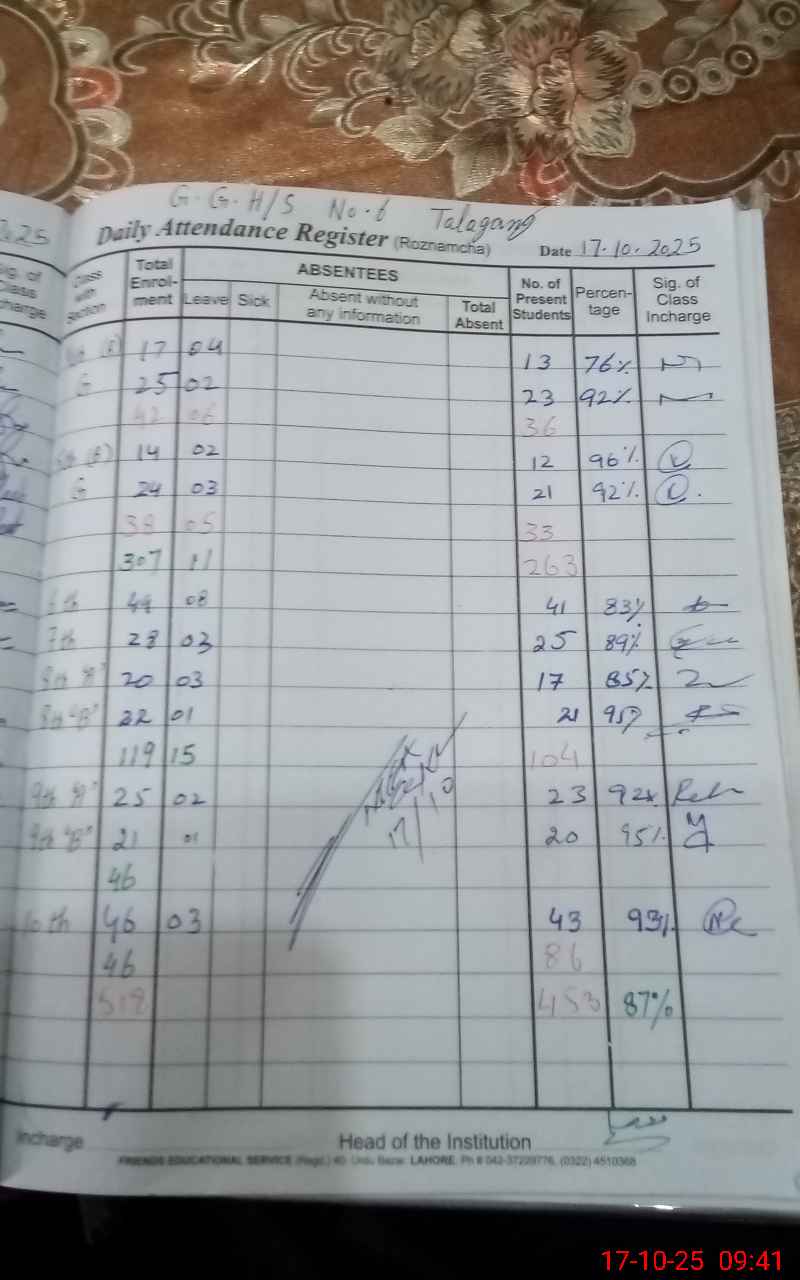 G.G.H/S No.6 Talagang
Daily Attendance Register (Roznamcha) Date 17.10.2025
Sig. of Class Incharge
Class with Section
Total Enrol-ment
ABSENTEES
Leave Sick Absent without any information Total Absent
No. of Present Students
Percen-tage
Sig. of Class Incharge
(B) 17 04 13 76%
G 25 02 23 92%
42 06 36
5th (B) 14 02 12 96%
G 24 03 21 92%
38 05 33
307 11 263
6th 49 08 41 83%
7th 28 03 25 89%
8th "A" 20 03 17 85%
8th "B" 22 01 21 95%
119 15 104
9th "A" 25 02 23 92%
9th "B" 21 01 20 95%
46
10th 46 03 43 93%
46 86
518 453 87%
17/10
Incharge Head of the Institution
FRIENDS EDUCATIONAL SERVICE (Regd.) 40- Urdu Bazar, LAHORE. Ph # 042-37229776, (0322) 4510368
17-10-25 09:41